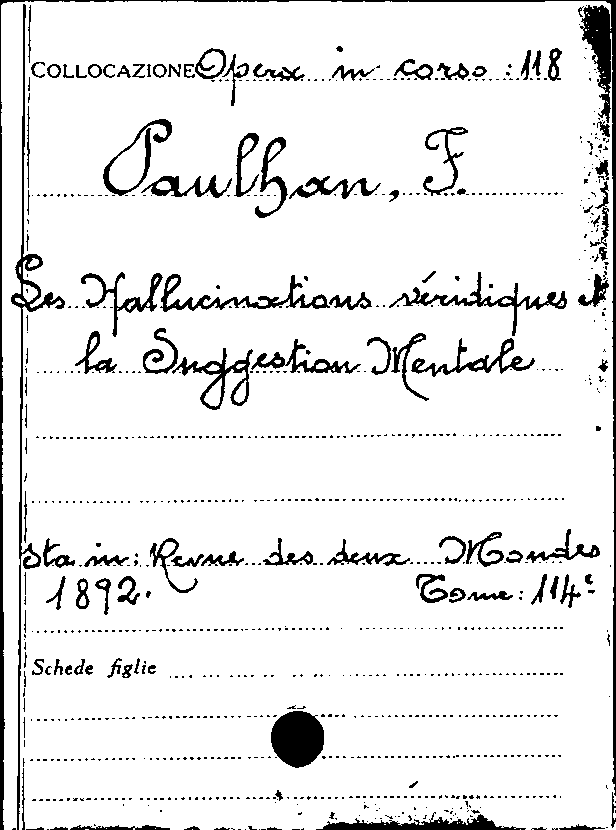 COLLOCAZIONE Opera in corso : 118
Paulhan, F.
Les Hallucinations véridiques et
la Suggestion Mentale
sta in: Revue des deux Mondes
1892. Tome: 114e
Schede figlie